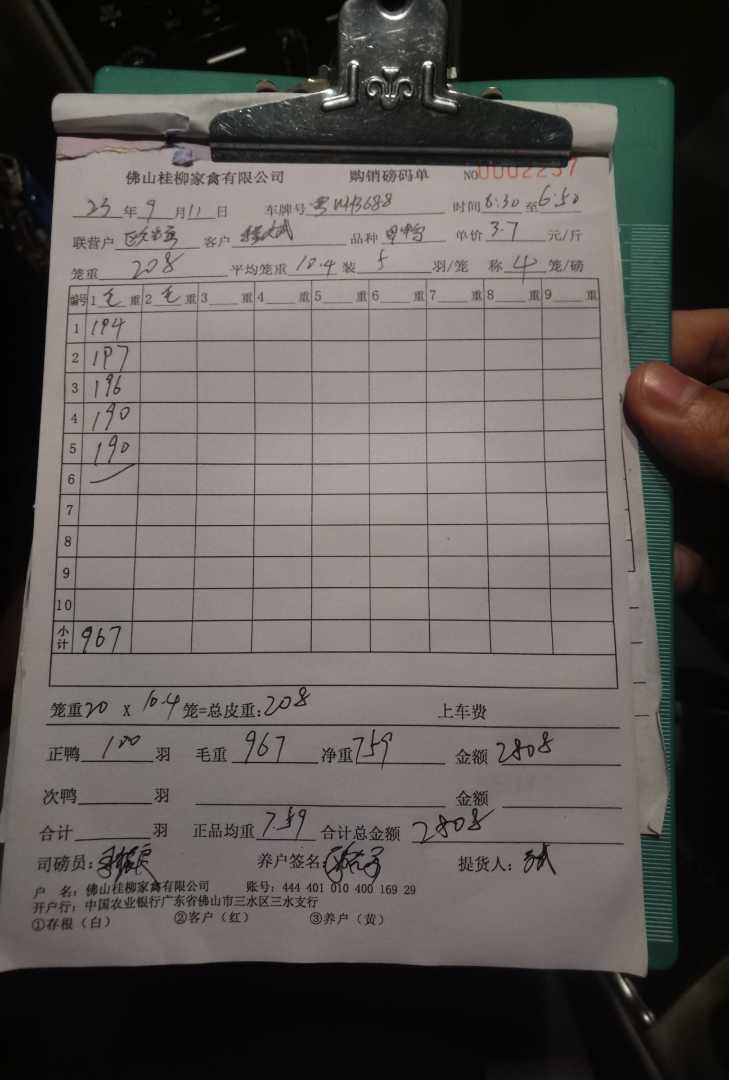 佛山桂柳家禽有限公司 购销磅码单 NO0002257
23年9月11日 车牌号 粤WH3688 时间6:30至6:50
联营户 客户 品种 单价3.7元/斤
笼重208 平均笼重10.4装5羽/笼 称4笼/磅
编号 1毛重 2毛重 3重 4重 5重 6重 7重 8重 9重
1 194
2 197
3 196
4 190
5 190
6
7
8
9
10
小计 967
笼重20 x 10.4笼=总皮重:208 上车费
正鸭100羽 毛重967 净重759 金额2808
次鸭 羽 金额
合计 羽 正品均重7.59 合计总金额2808
司磅员: 养户签名: 提货人:
户 名:佛山桂柳家禽有限公司 账号:444 401 010 400 169 29
开户行:中国农业银行广东省佛山市三水区三水支行
①存根(白) ②客户(红) ③养户(黄)